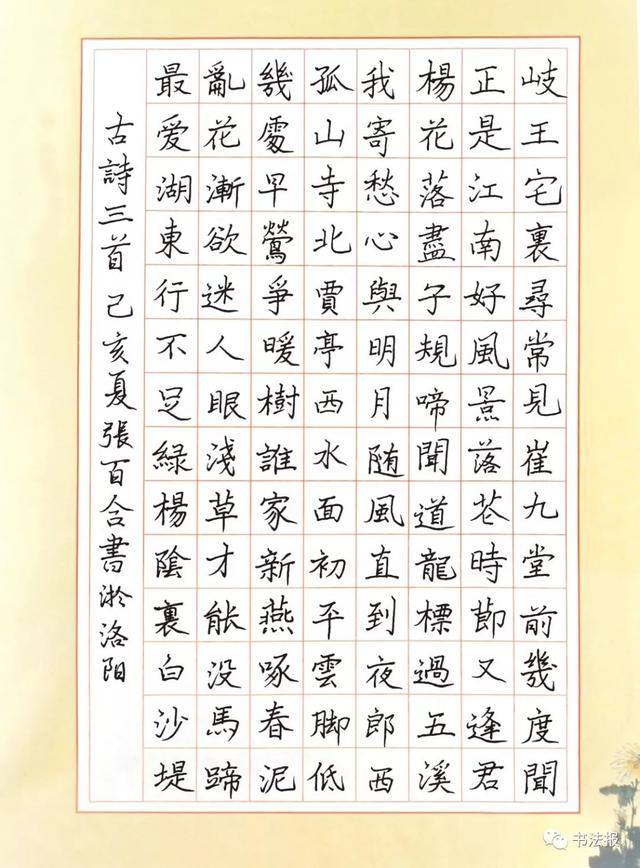 岐王宅裏尋常見崔九堂前幾度聞
正是江南好風景落花時節又逢君
楊花落盡子規啼聞道龍標過五溪
我寄愁心與明月随風直到夜郎西
孤山寺北賈亭西水面初平雲脚低
幾處早鶯爭暖樹誰家新燕啄春泥
亂花漸欲迷人眼淺草才能没馬蹄
最爱湖東行不足綠楊陰裏白沙堤
古詩三首己亥夏張百合書於洛阳
书法报